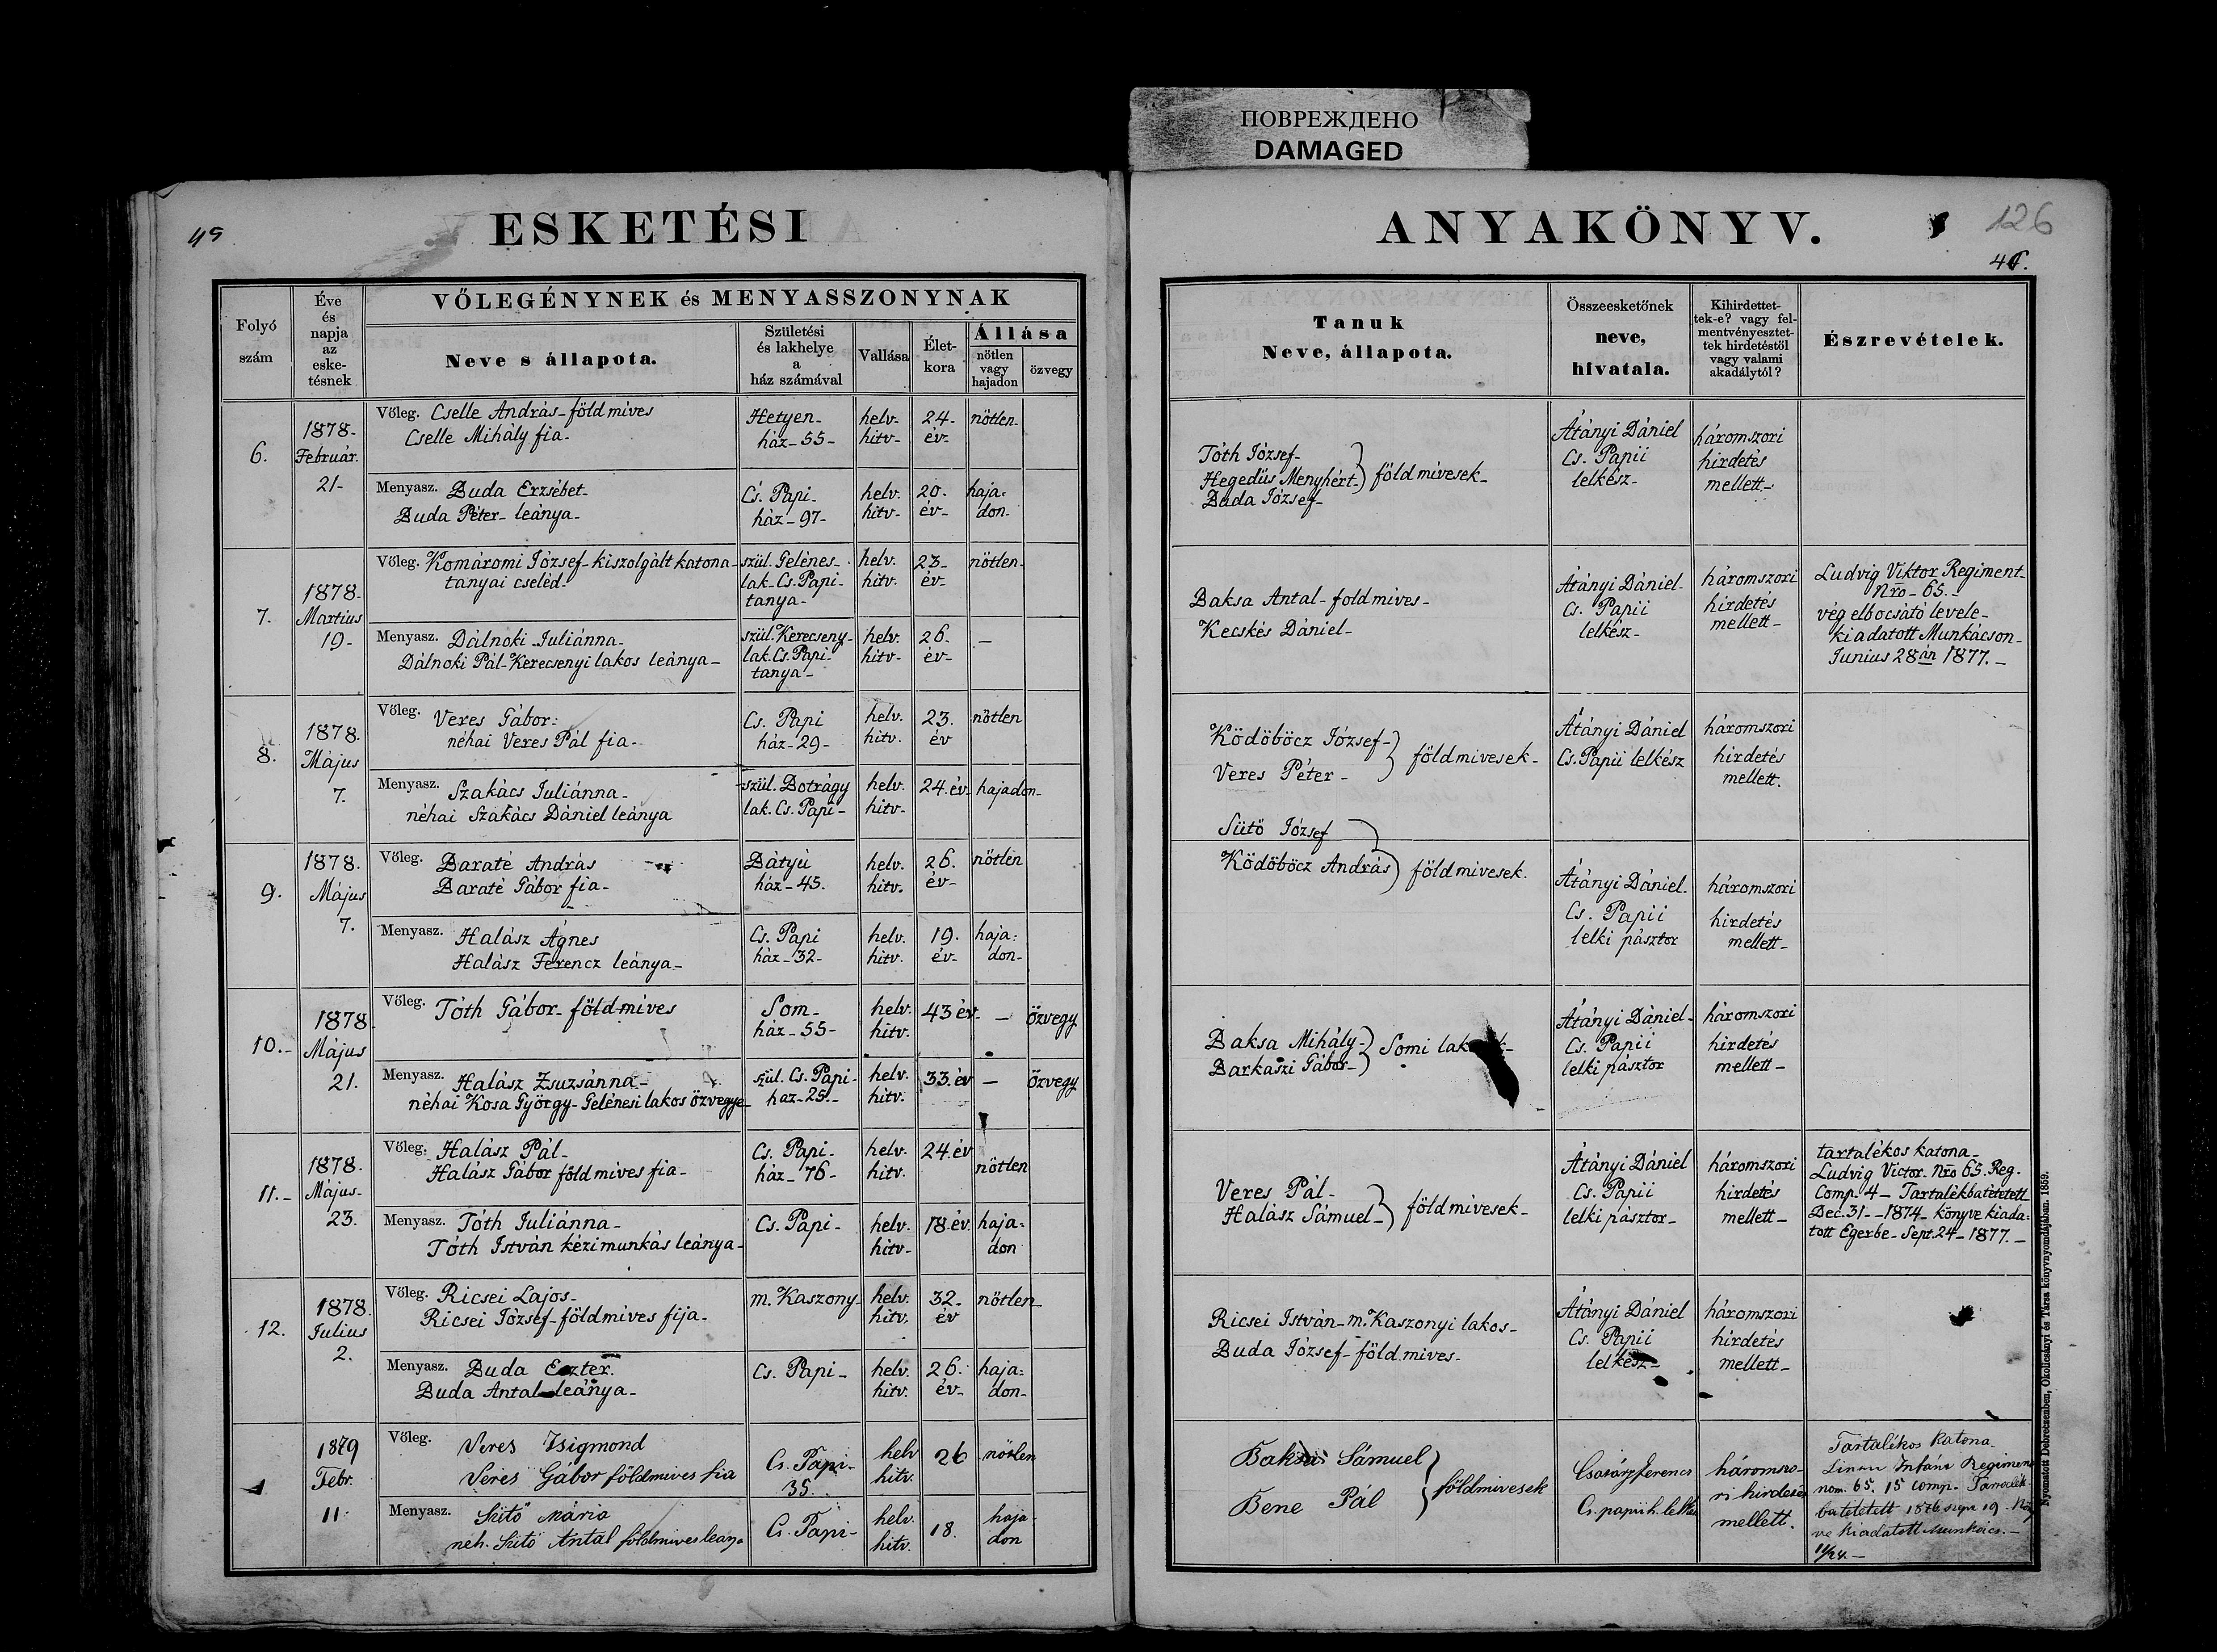 ПОВРЕЖДЕНО
DAMAGED
ESKETÉSI
ANYAKÖNYV.
126
VŐLEGÉNYNEK és MENYASSZONYNAK
Folyó
szám
Éve
és
napja
az
eske-
tésnek
Neve s állapota.
Születési
és lakhelye
a
ház számával
Vallása
Élet-
kora
Állása
nőtlen
vagy
hajadon
özvegy
Tanuk
Neve, állapota.
Összeesketőnek
neve,
hivatala.
Kihirdettet-
tek-e? vagy fel-
mentvényesztet-
tek hirdetéstől
vagy valami
akadálytól?
Észrevételek.
6.
1878-
Február.
21-
Vőleg. Cselle András-földmíves
Cselle Mihály fia-
Hetyen-
ház-55-
helv-
hitv-
24-
év-
nőtlen-
Menyasz. Buda Erzsébet-
Buda Péter- leánya-
Cs. Papi-
ház-97-
helv.
hitv-
20.
év-
haja-
don-
Tóth József-
Hegedűs Menyhért-) földmivesek-
Buda József-
Átányi Dániel
Cs. Papii
lelkész-
háromszori
hirdetés
mellett-
7.
1878-
Martius
19-
Vőleg. Komáromi József-kiszolgált katona-
tanyai cseléd-
szül. Gelénes-
lak-Cs. Papi-
tanya-
helv.
hitv.
23-
év-
nőtlen-
Menyasz. Dálnoki Juliánna-
Dálnoki Pál-Kerecsenyi lakos leánya-
szül. Kerecseny-
lak. Cs. Papi-
tanya-
helv.
hitv-
26.
év-
-
Baksa Antal-foldmives-
Kecskés Dániel-
Átányi Dániel-
Cs. Papii
lelkész-
háromszori
hirdetés
mellett-
Ludvig Viktor Regiment-
Nro- 65.-
vég elbocsátó levele-
kiadatott Munkácson-
Junius 28án 1877.-
8.
1878.
Május
7.
Vőleg. Veres Gábor-
néhai Veres Pál fia-
Cs. Papi
ház-29-
helv.
hitv.
23.
év
nőtlen
Menyasz. Szakács Juliánna-
néhai Szakács Dániel leánya
szül. Botrágy
lak. Cs. Papi-
helv.
hitv-
24.év-
hajadon-
Ködöböcz József-
Veres Péter-
) földmivesek-
Átányi Dániel
Cs. Papii lelkész
háromszori
hirdetés
mellett.
9.
1878.
Május
7.
Vőleg. Baraté András
Baraté Gábor fia-
Bátyú
ház-45.
helv.
hitv.
26.
év-
nőtlen
Menyasz. Halász Ágnes
Halász Ferencz leánya-
Cs. Papi
ház-32-
helv.
hitv.
19.
év-
haja-
don-
Sütő József
Ködöböcz András) földmivesek.
Átányi Dániel.
Cs. Papii
lelki pásztor
háromszori
hirdetés
mellett-
10.-
1878
Május
21.
Vőleg. Tóth Gábor-földmíves
Som-
ház-55-
helv.
hitv.
43 év-
-
özvegy
Menyasz. Halász Zsuzsánna-
néhai Kosa György-Gelénesi lakos özvegye-
szül. Cs. Papi-
ház-25.-
helv.
hitv.
33. év
-
özvegy
Baksa Mihály-
Barkaszi Gábor-
) Somi
Átányi Dániel-
Cs. Papii
lelki pásztor
háromszori
hirdetés
mellett-
11.-
1878.
Május-
23.
Vőleg. Halász Pál-
Halász Gábor földmíves fia-
Cs. Papi-
ház-76-
helv.
hitv.
24.év
nőtlen
Menyasz. Tóth Juliánna-
Tóth István kézimunkás leánya-
Cs. Papi-
helv.
hitv-
18.év.
haja-
don
Veres Pál-
Halász Sámuel-
) földmivesek-
Átányi Dániel
Cs. Papii
lelki pásztor-
háromszori
hirdetés
mellett-
tartalékos katona-
Ludvig Victor. Nro 65. Reg.
Comp. 4- Tartalékbatétetett
Dec. 31--1874- könyve kiada-
tott Egerbe-Sept. 24-1877.-
12.
1878.
Julius
2.
Vőleg. Ricsei Lajos-
Ricsei József-földmíves fija-
m. Kaszony-
helv.
hitv.
32.
év
nőtlen-
Menyasz. Buda Eszter.
Buda Antal leánya-
Cs. Papi-
helv.
hitv.
26.
év-
haja-
don-
Ricsei István-m. Kaszonyi lakos-
Buda József-földmives-
Átányi Dániel
Cs. Papii
lelkész-
háromszori
hirdetés
mellett-
1879
Febr.
11.
Vőleg. Veres Zsigmond
Veres Gábor földmives fia
Cs. Papi-
35.
helv
hitv.
26
nőtlen
Menyasz. Sütő Mária
néh. Sütő Antal földmives leánya
Cs. Papi-
helv.
hitv.
18.
haja-
don
Baksa Sámuel
Bene Pál
} földmivesek
Császár Ferencz
Cs. papii h. lelkész
háromszo-
ri hirdetés
mellett.
Tartalékos katona-
Regiment
nom. 65. 15 comp.
batétetett 1876
ve kiadatott Munkács.-
11/24.-
Nyomatott Debreczenben, Okolicsányi és Társa könyvnyomdájában. 1859.